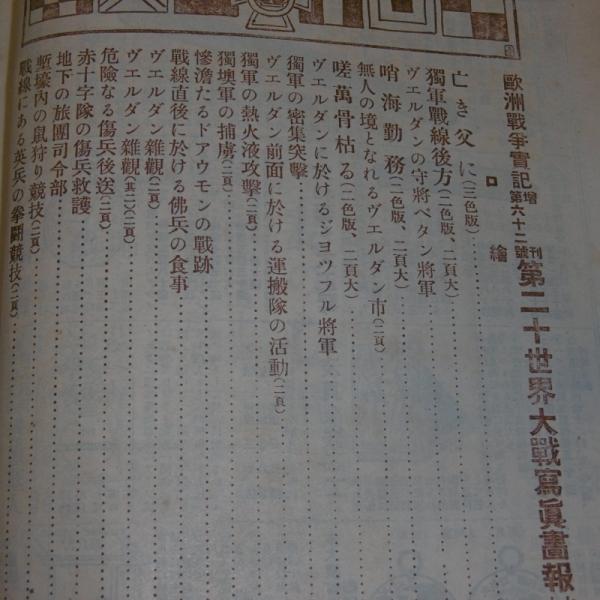 歐洲戰爭實記 増刊 第六十二號 第二十世界大戰寫眞畫報
口繪
亡き父に(三色版)
獨軍戰線後方(二色版、二頁大)
ヴエルダンの守將ペタン將軍
哨海勤務(二色版、二頁大)
無人の境となれるヴエルダン市(二頁)
嗟萬骨枯る(二色版、二頁大)
ヴエルダンに於けるジヨツフル將軍
獨軍の密集突擊
ヴエルダン前面に於ける運搬隊の活動(二頁)
獨軍の熱火液攻擊(二頁)
獨墺軍の捕虜(二頁)
慘澹たるドアウモンの戰跡
戰線直後に於ける佛兵の食事
ヴエルダン雜觀(二頁)
ヴエルダン雜觀(其二)(二頁)
危險なる傷兵後送(二頁)
赤十字隊の傷兵救護
地下の旅團司令部
塹壕內の鼠狩り競技(二頁)
戰線にある英兵の拳鬪競技(二頁)